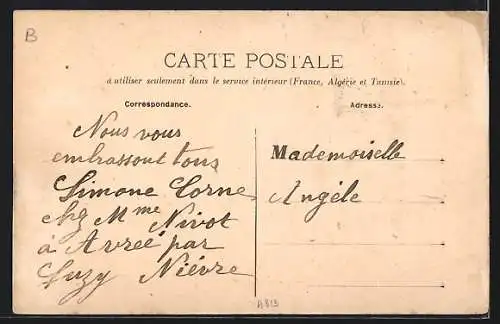 B
CARTE POSTALE
à utiliser seulement dans le service intérieur (France, Algérie et Tunisie).
Correspondance.
Adresse.
Nous vous
embrassont tous
Simone Corne
chg Mme Nivot
à Avrée par
Luzy Nièvre
Mademoiselle
Angéle
A813